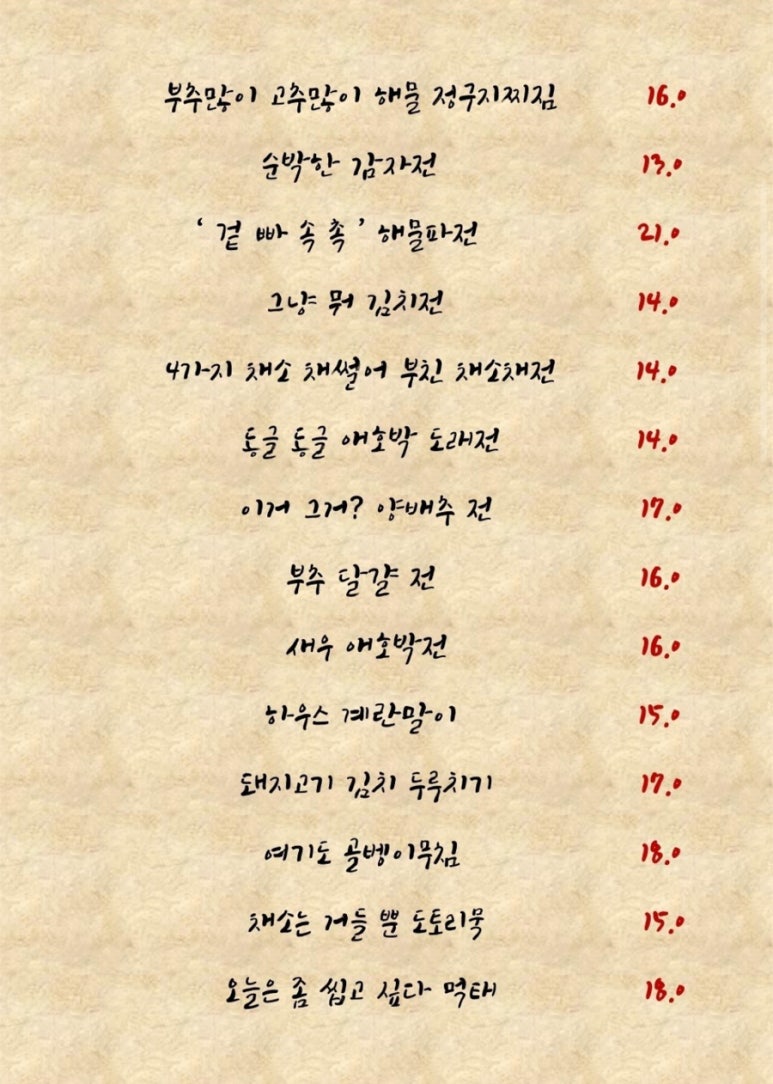 부추많이 고추많이 해물 정구지찌짐 16.0
순박한 감자전 13.0
‘ 겉 빠 속 촉 ’ 해물파전 21.0
그냥 뭐 김치전 14.0
4가지 채소 채썰어 부친 채소채전 14.0
동글 동글 애호박 도래전 14.0
이거 그거? 양배추 전 17.0
부추 달걀 전 16.0
새우 애호박전 16.0
하우스 계란말이 15.0
돼지고기 김치 두루치기 17.0
여기도 골벵이무침 18.0
채소는 거들 뿐 도토리묵 15.0
오늘은 좀 씹고 싶다 먹태 18.0